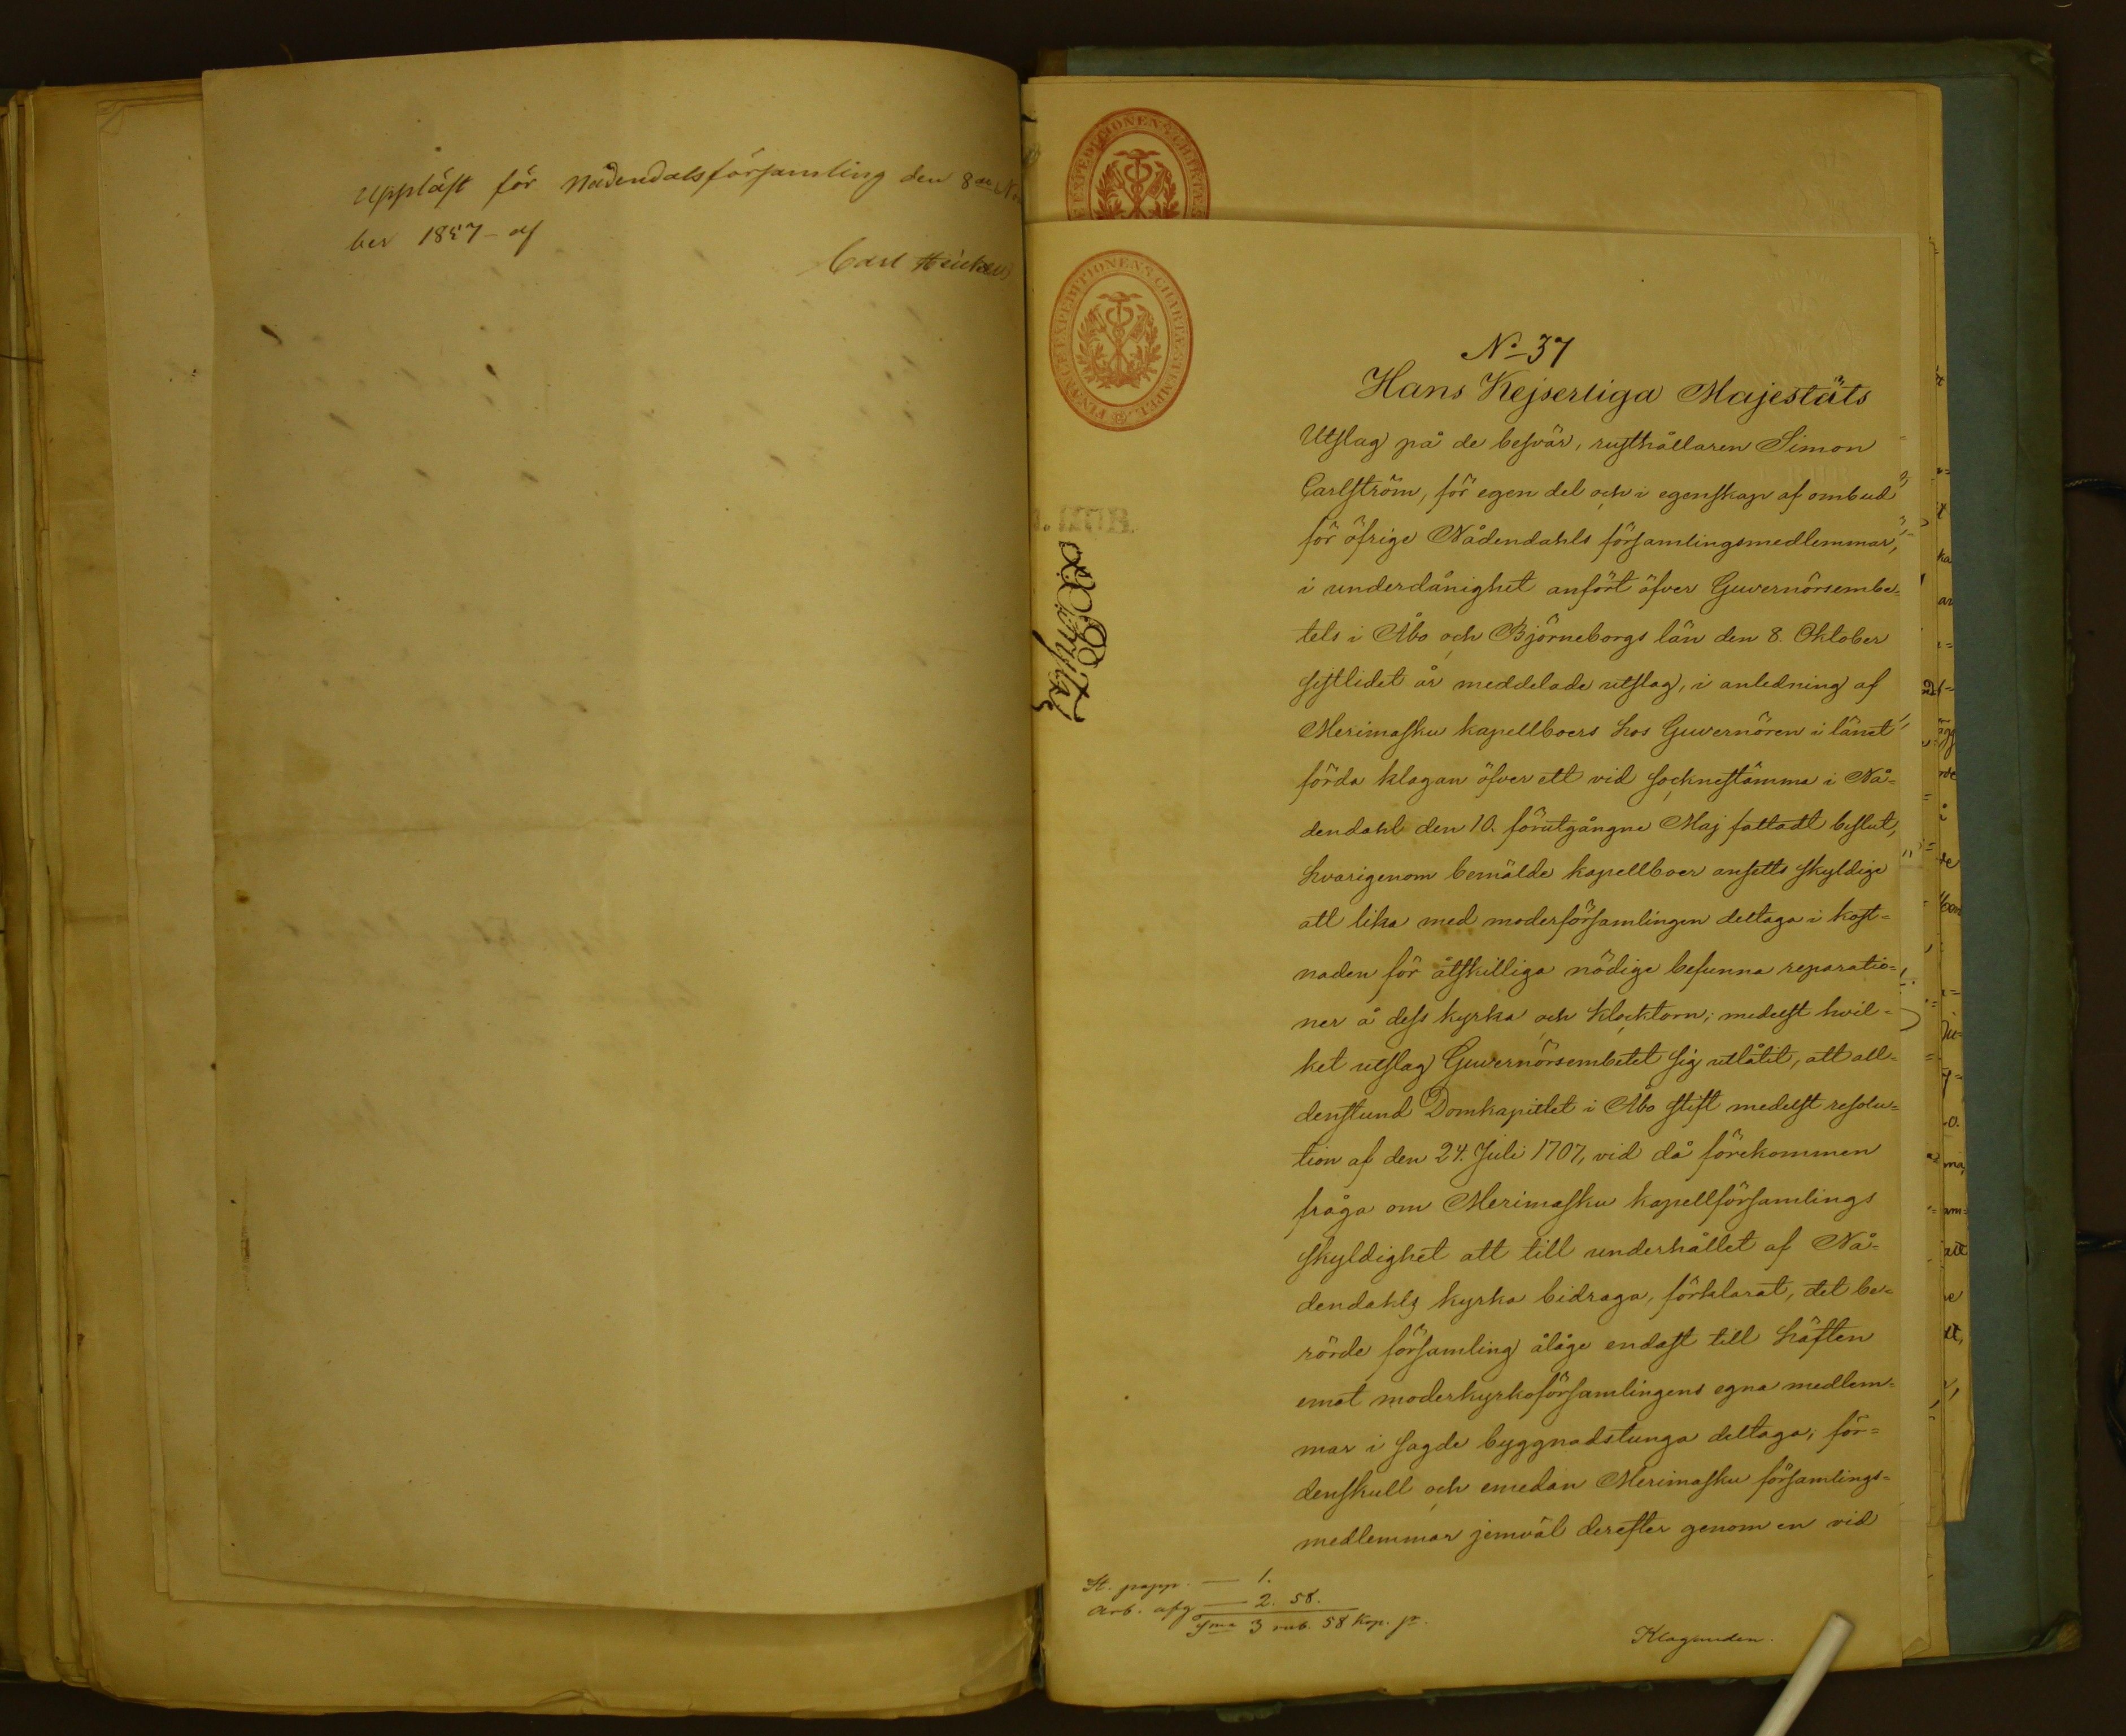 Uppläst för Nådendalsförsamling den 8de
ber 1857 af
Carl
FINANCE EXPEDITIONENS CHARTÆ STEMPEL
No 37
Hans Kejserliga Majestäts
Utslag på de besvär, rusthållaren Simon
Carlström, för egen del och i egenskap af ombud
för öfrige Nådendahls församlingsmedlemmar,
i underdånighet anfört öfver Guvernörsembe-
tets i Åbo och Björneborgs län den 8. Oktober
sistlidet år meddelade utslag, i anledning af
Merimasku kapellboers hos Guvernören i länet
förda klagan öfver ett vid socknestämma i Nå-
dendahl den 10. förutgångne Maj fattadt beslut,
hvarigenom bemälde kapellboer ansetts skyldige
att lika med moderförsamlingen deltaga i kost-
naden för åtskilliga nödige befunna reparatio-
ner å dess kyrka och klocktorn; medelst hvil-
ket utslag Guvernörsembetet sig utlåtit, att all-
denstund Domkapitlet i Åbo stift medelst resolu-
tion af den 24. Juli 1707, vid då förekommen
fråga om Merimasku kapellförsamlings
skyldighet att till underhållet af Nå-
dendahls kyrka bidraga, förklarat, det be-
rörde församling ålåge endast till häften
emot moderkyrkoförsamlingens egna medlem-
mar i sagde byggnadstunga deltaga; för-
denskull och emedan Merimasku församlings-
medlemmar jemväl derefter genom en vid
St. papp. — 1.
Arb. afg — 2. 58.
Sma 3 rub. 58 kop. sr.
Klaganden.